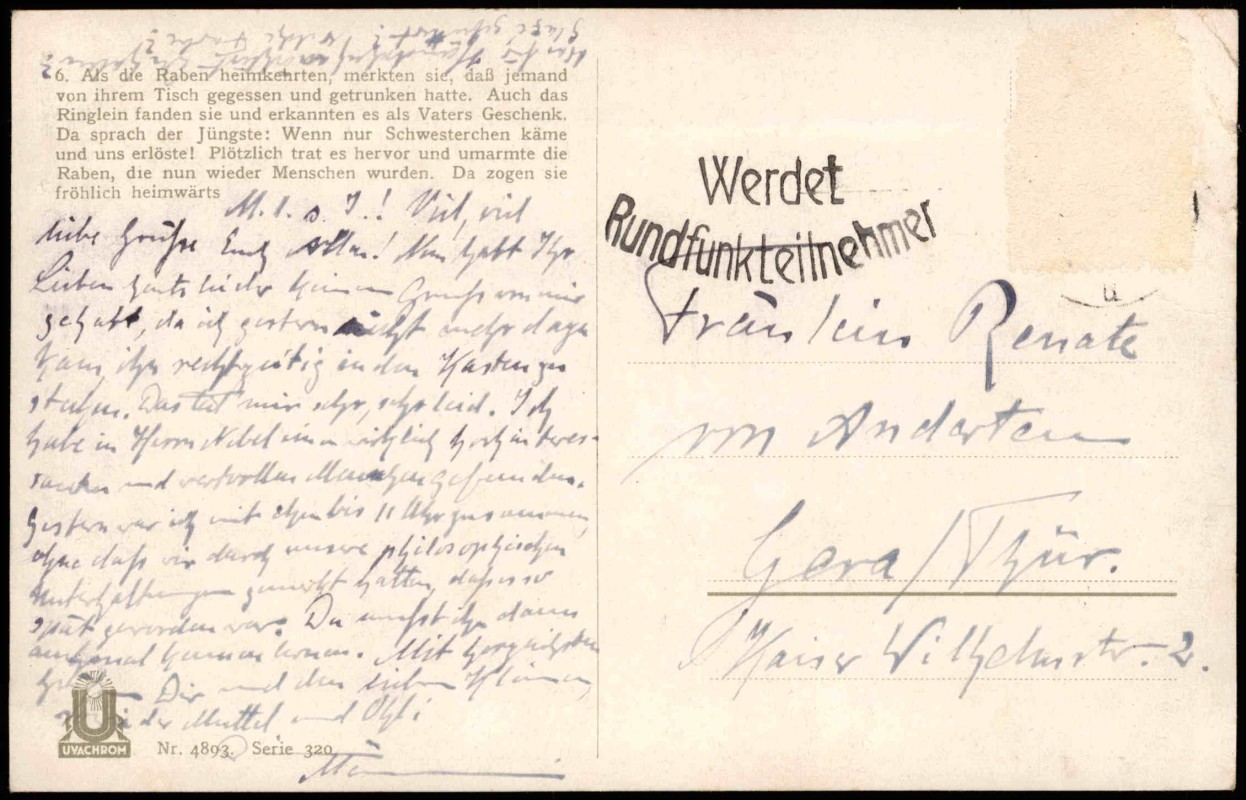 6. Als die Raben heimkehrten, merkten sie, daß jemand
von ihrem Tisch gegessen und getrunken hatte. Auch das
Ringlein fanden sie und erkannten es als Vaters Geschenk.
Da sprach der Jüngste: Wenn nur Schwesterchen käme
und uns erlöste! Plötzlich trat es hervor und umarmte die
Raben, die nun wieder Menschen wurden. Da zogen sie
fröhlich heimwärts
M. l. s. J.! Viel, viel
liebe Grüße Euch Allen! Nun habt Ihr
Lieben heute leider keinen Gruß von mir
gehabt, da ich gestern nicht mehr dazu
kam, ihn rechtzeitig in den Kasten zu
stecken. Das tut mir sehr, sehr leid. Ich
habe in Herrn Nebel einen wirklich hochinteres-
santen und wertvollen Menschen gefunden.
Gestern war ich mit ihm bis 11 Uhr zusammen,
ohne daß wir durch unsere philosophischen
Unterhaltungen gemerkt hatten, daß es so
spät geworden war. Du mußt ihn dann
auch mal kennen lernen. Mit herzlichsten
Dir und den lieben Kleinen,
der Muttel und
UVACHROM
Nr. 4893. Serie 320
Werdet
Rundfunkteilnehmer
Fräulein Renate
von Anderten
Gera/Thür.
Kaiser Wilhelmstr. 2.